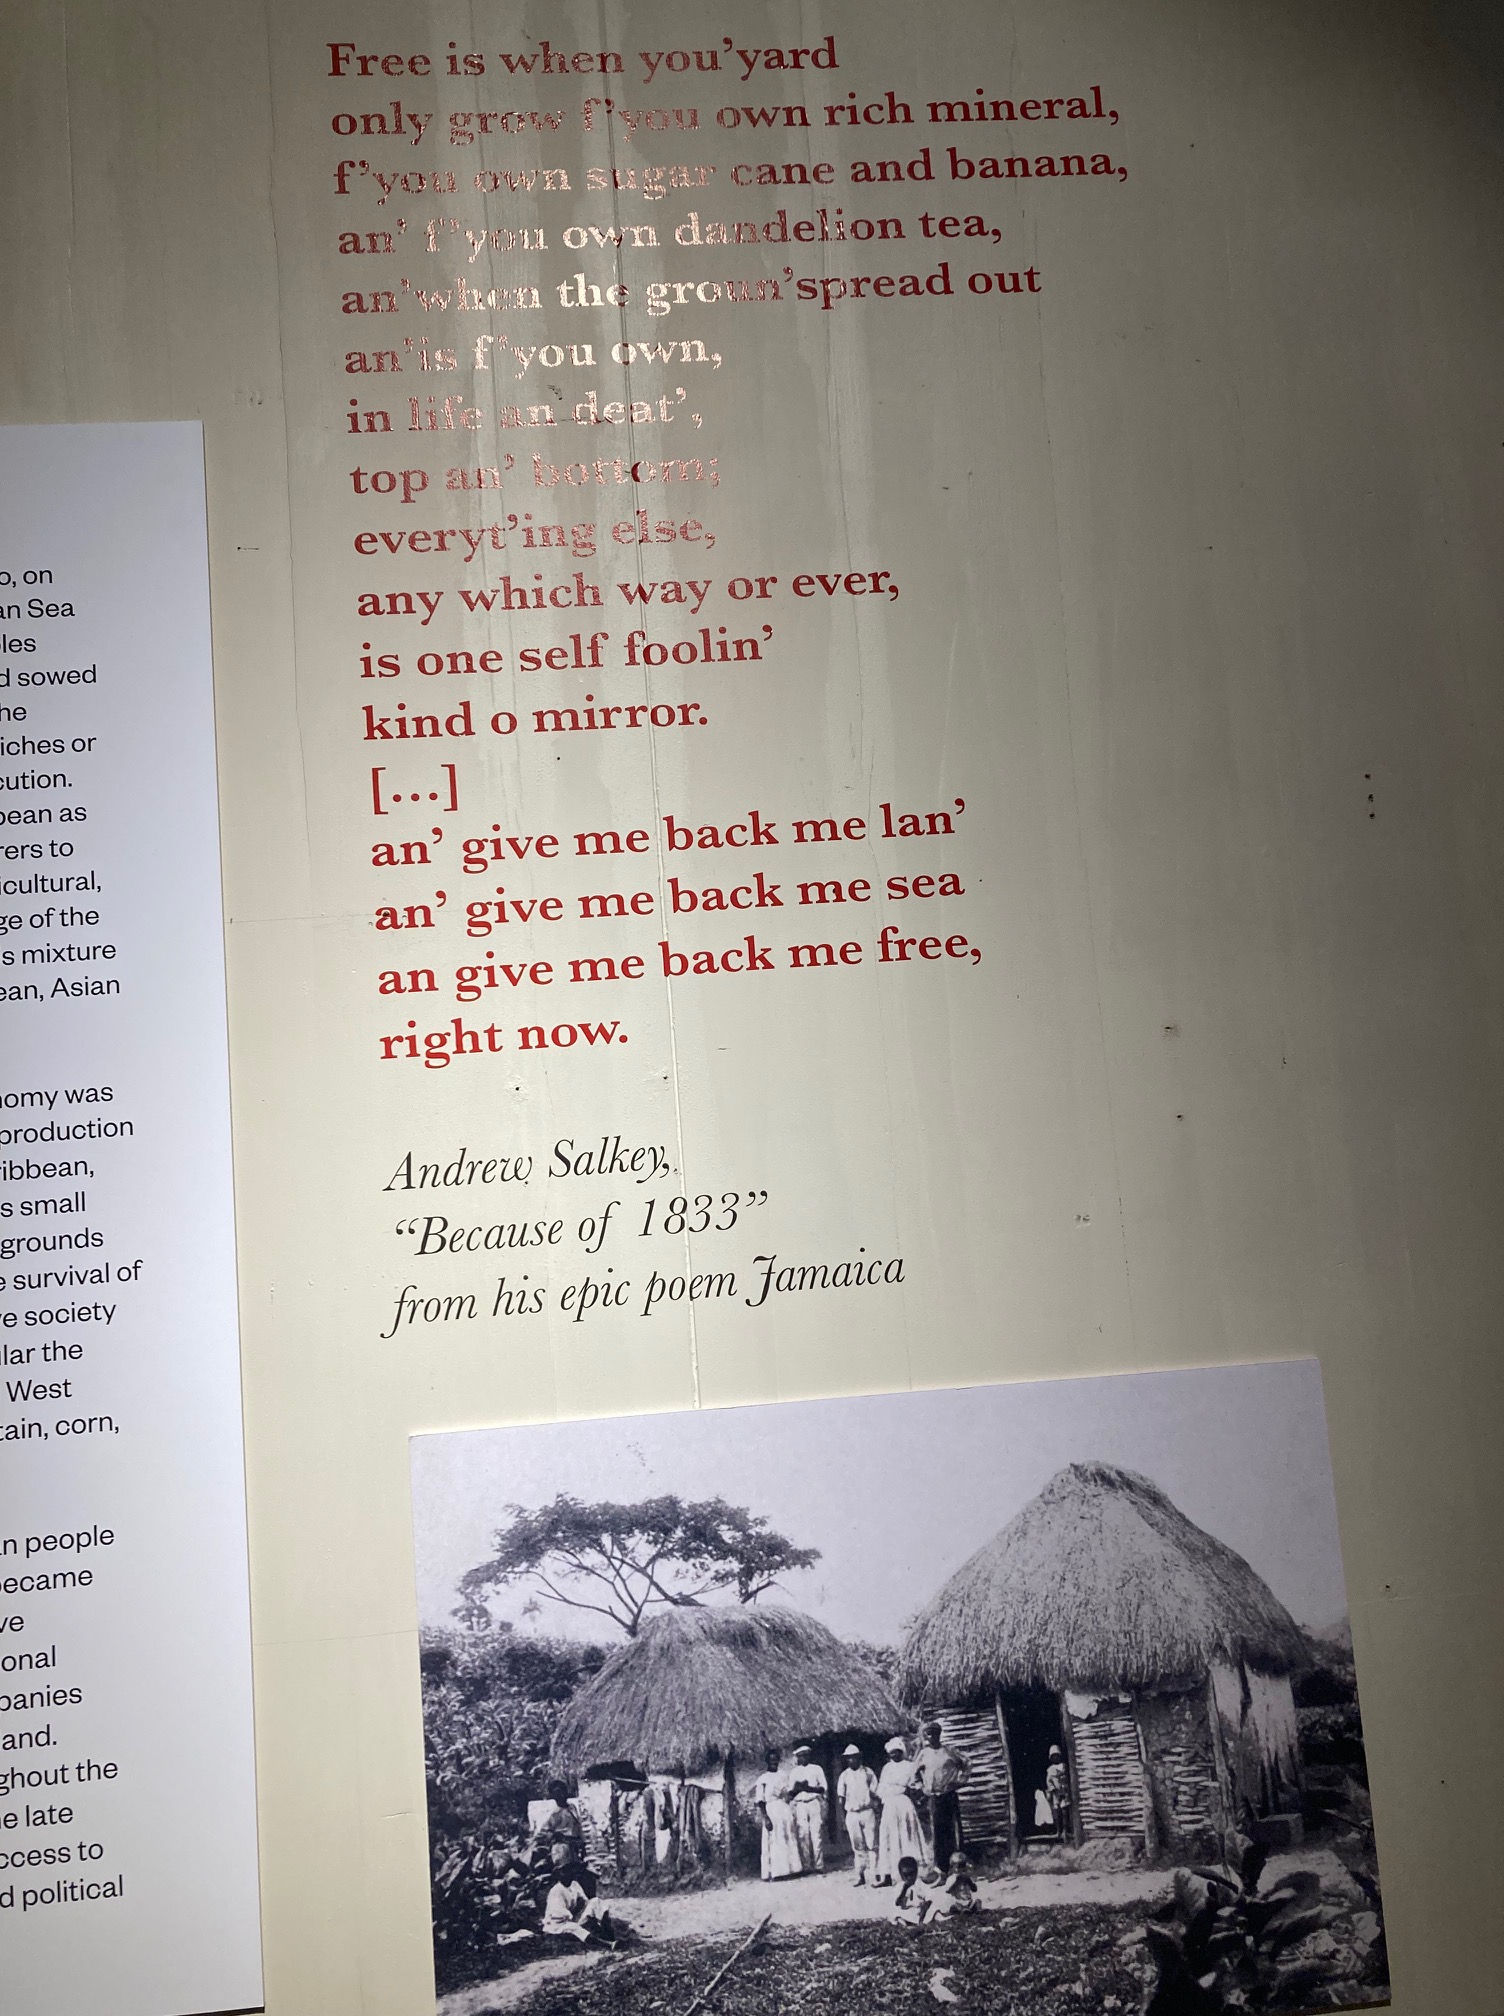 Free is when you'yard
only grow f'you own rich mineral,
f'you own sugar cane and banana,
an' f'you own dandelion tea,
an'when the groun'spread out
an'is f'you own,
in life an deat',
top an' bottom;
everyt'ing else,
any which way or ever,
is one self foolin'
kind o mirror.
[...]
an' give me back me lan'
an' give me back me sea
an give me back me free,
right now.
Andrew Salkey,
“Because of 1833”
from his epic poem Jamaica
on
Sea
sowed
or
as
to
of the
mixture
Asian
was
production
small
grounds
survival of
society
the
West
corn,
people
the
late
to
political